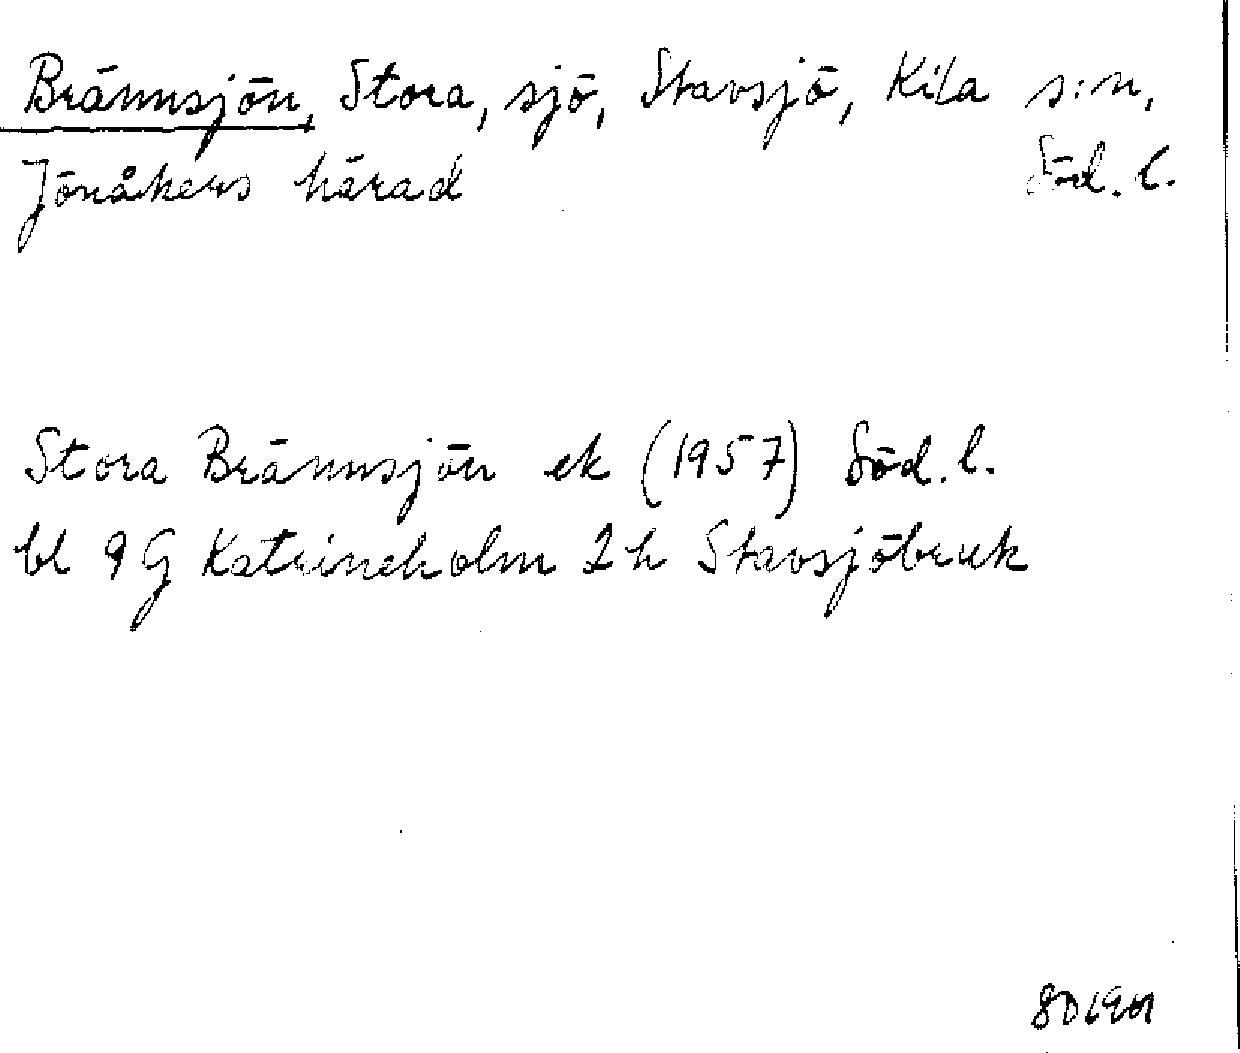 Brännsjön, Stora, sjö, Stavsjö, Kila s:n,
Jönåkers härad Söd. l.
Stora Brännsjön ek (1957) Söd. l.
bl 9 G Katrineholm 2 h Stavsjöbruk